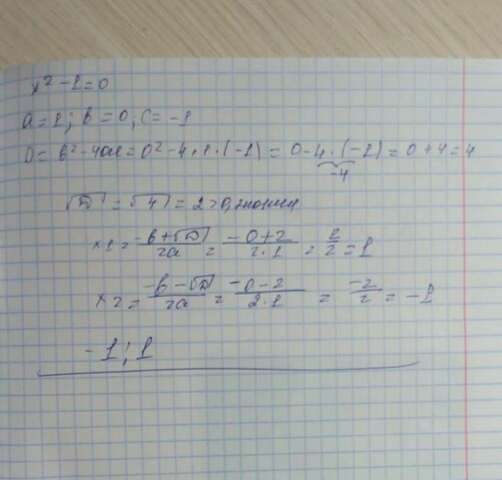 x² - 1 = 0
a = 1; b = 0; c = -1
D = b² - 4ac = 0² - 4 · 1 · (-1) = 0 - 4 · (-1) = 0 + 4 = 4
-4
√D = √4 = 2 > 0,
x1 = (-b + √D)/2a = (-0 + 2)/(2 · 1) = 2/2 = 1
x2 = (-b - √D)/2a = (-0 - 2)/(2 · 1) = -2/2 = -1
-1; 1